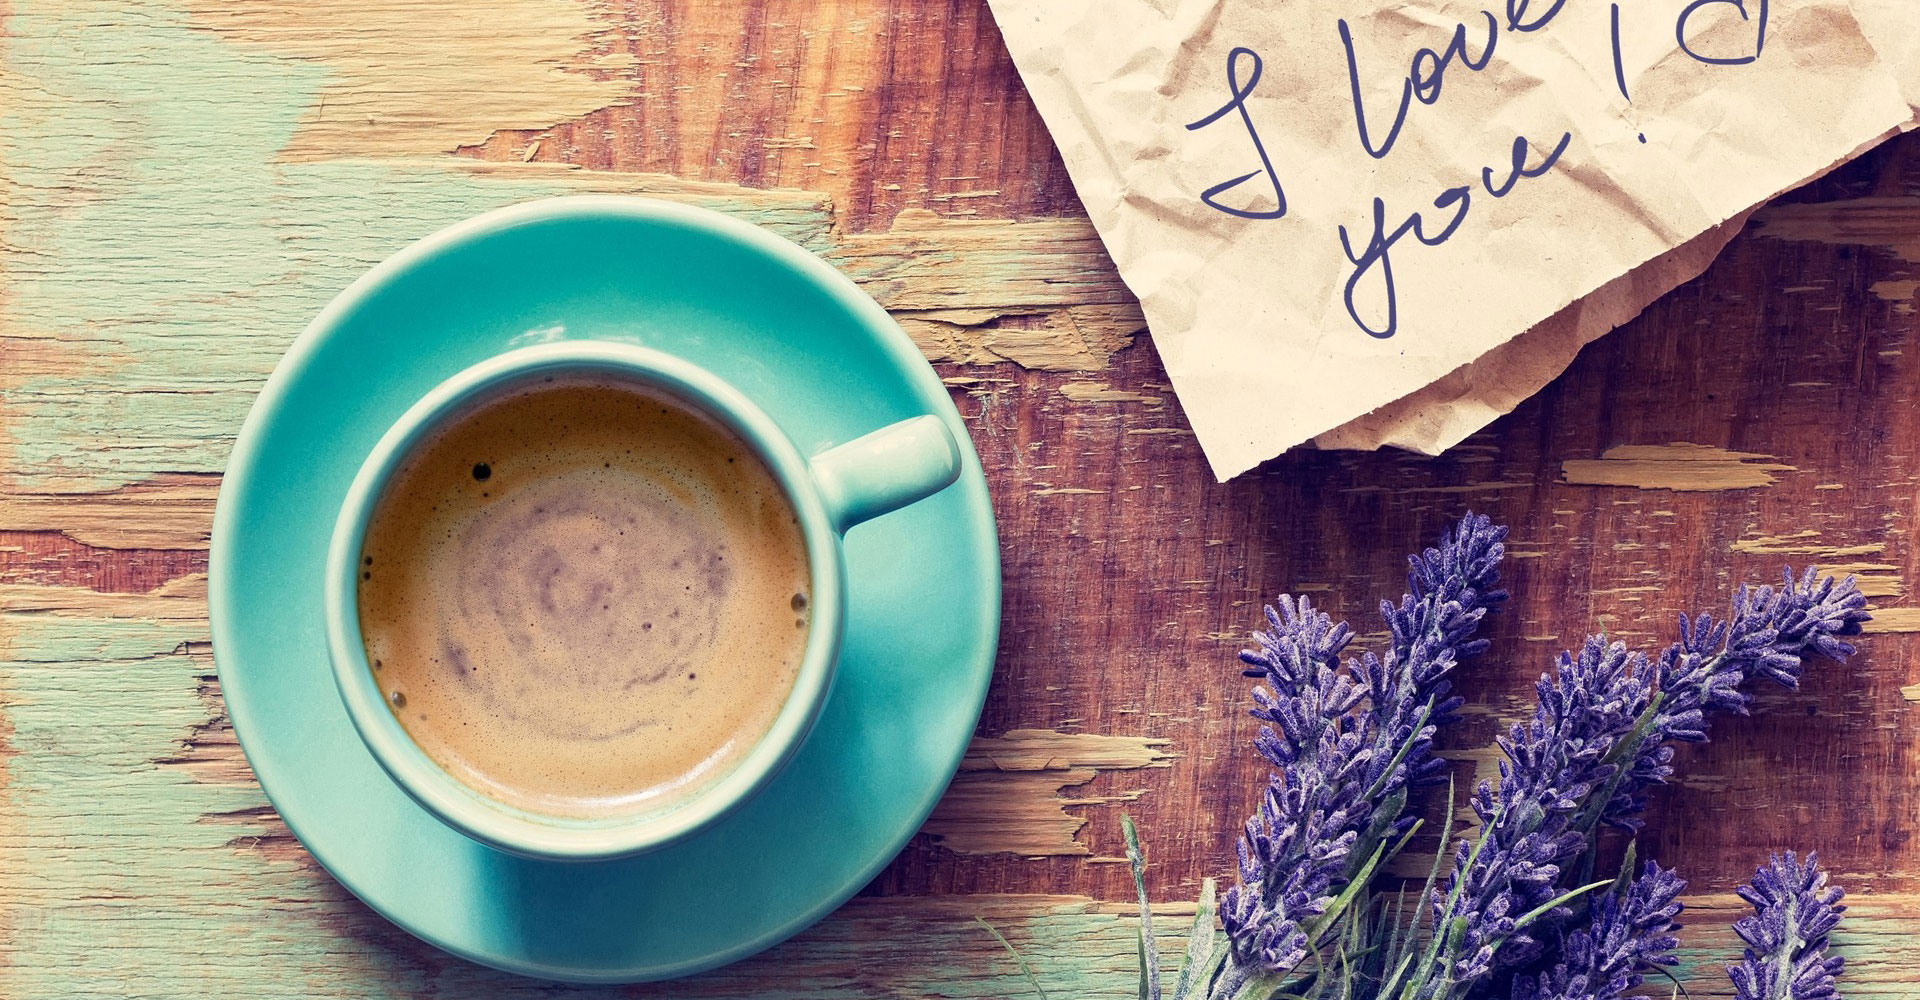 I Love
you!